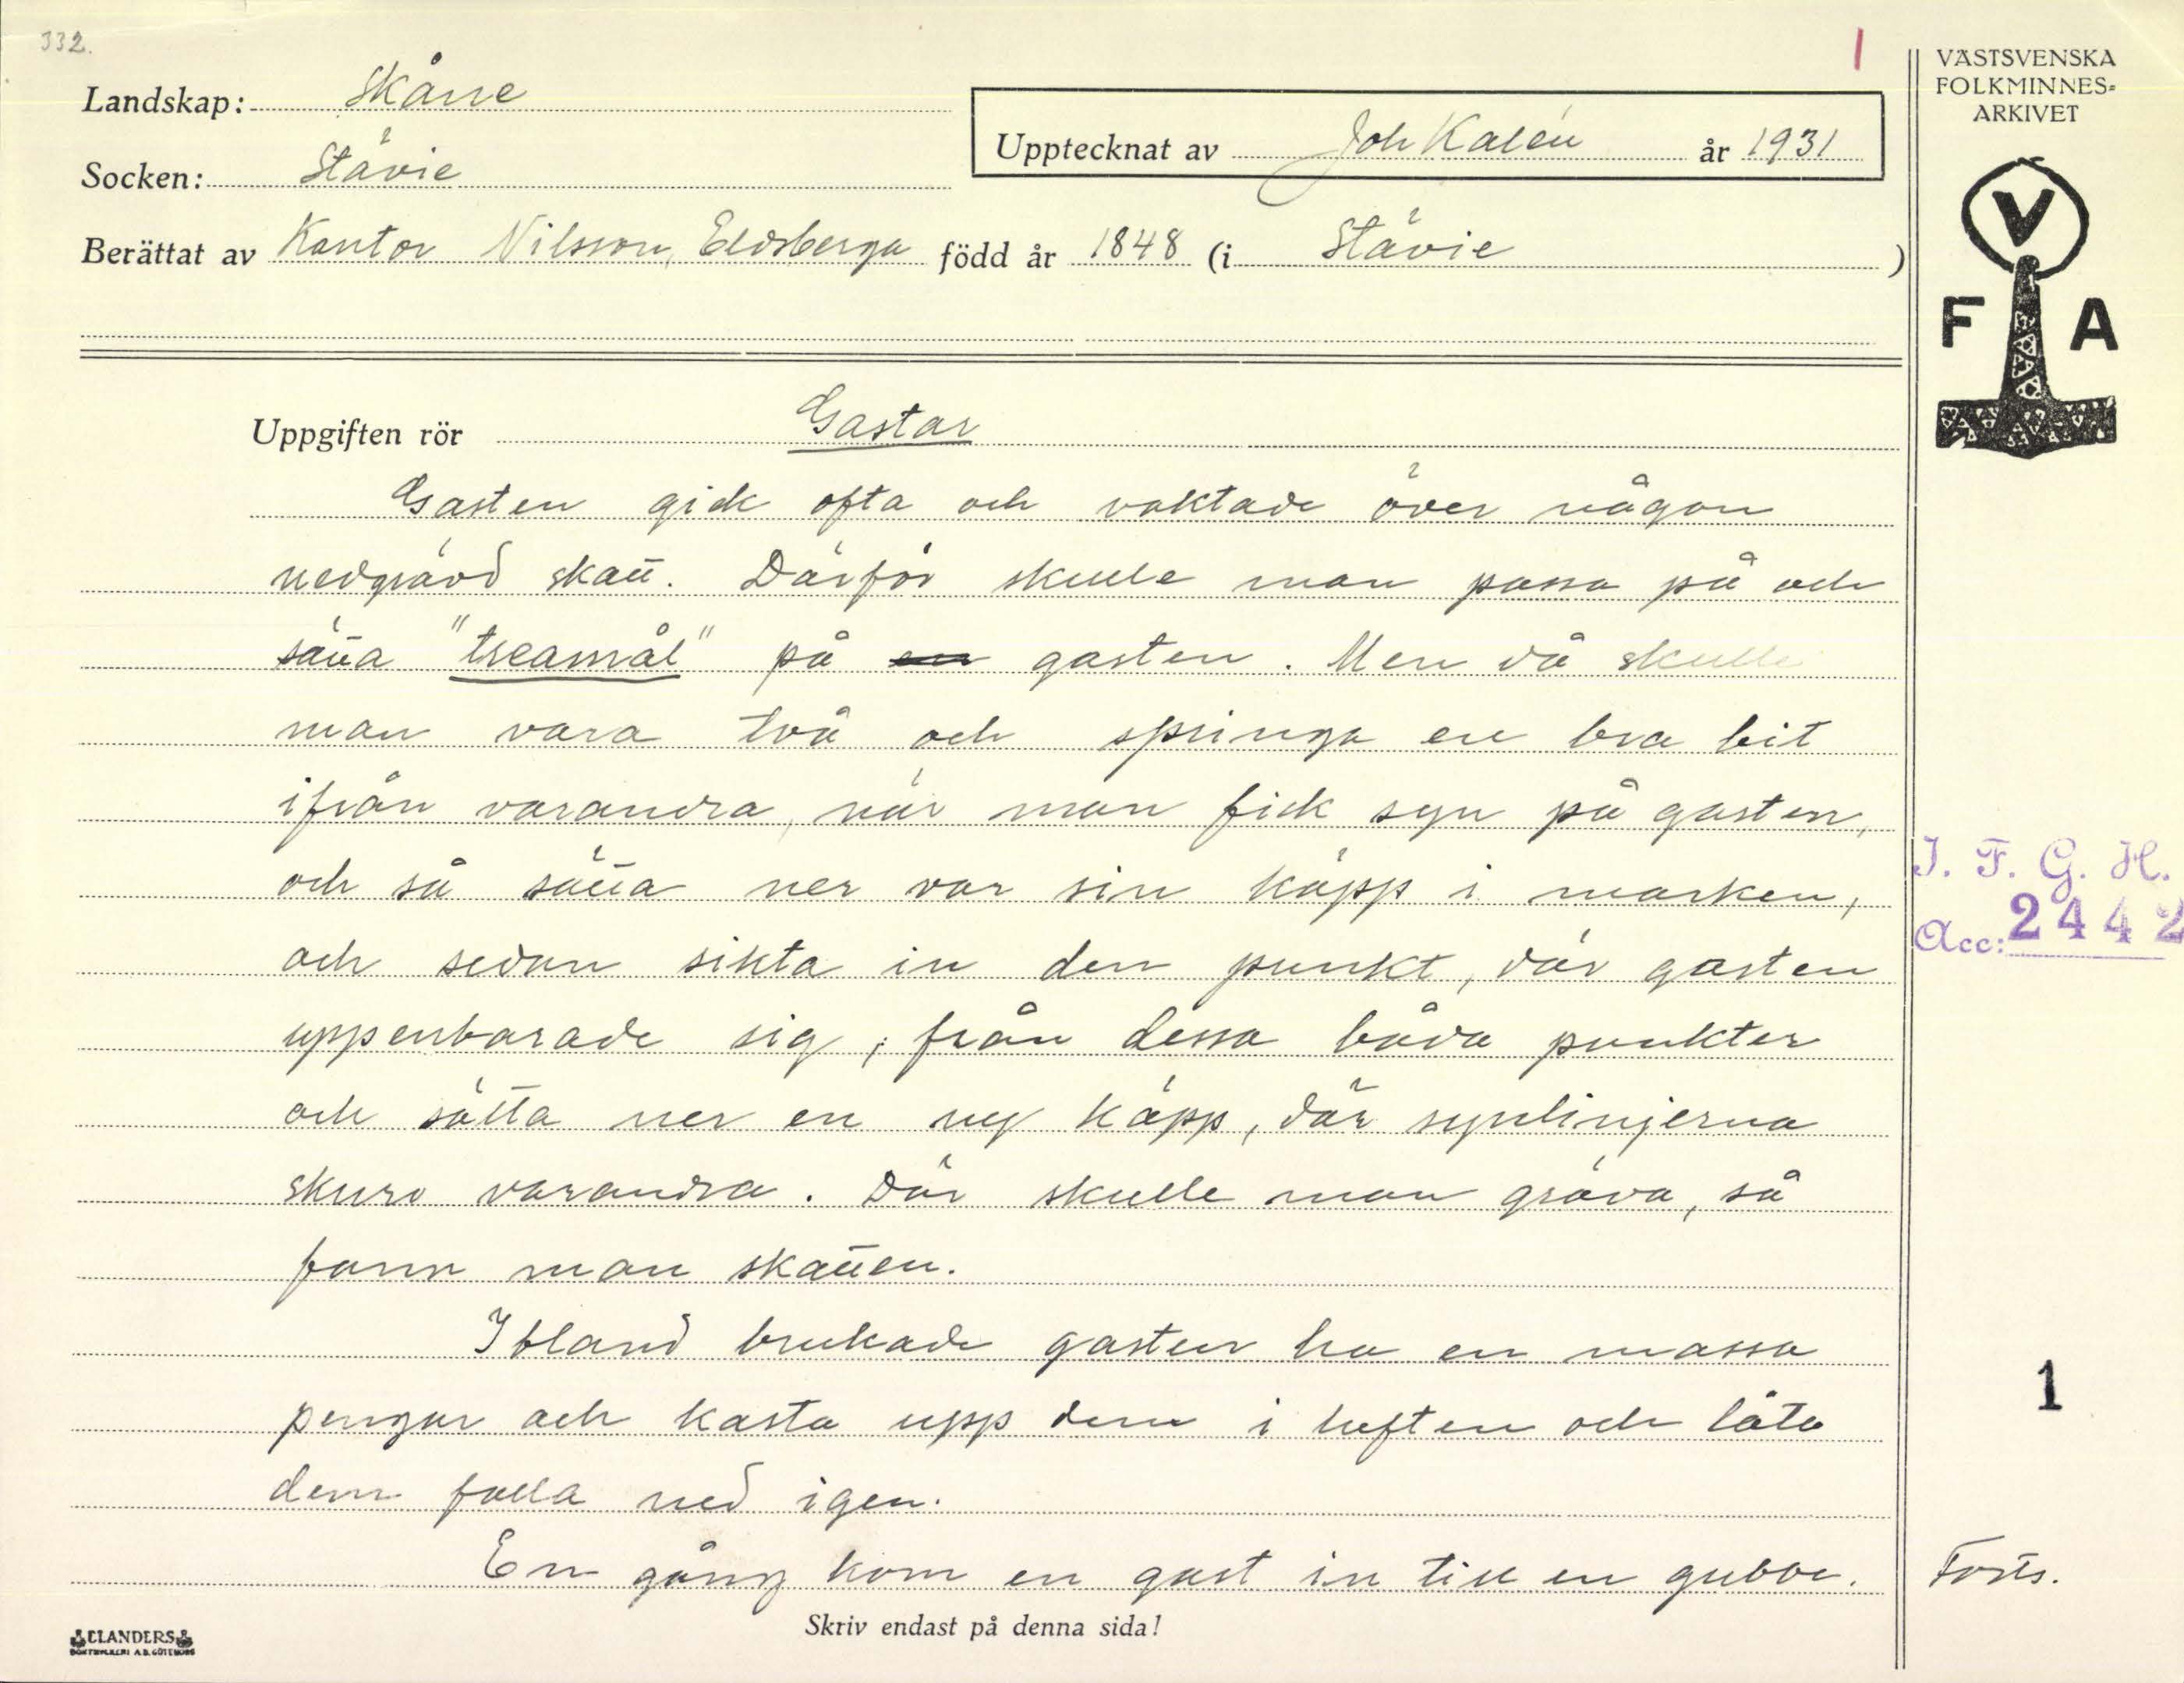 332.
1
Landskap: Skåne
Socken: Stävie
Upptecknat av Joh Kalén år 1931
Berättat av Kantor Nilsson, Eldsberga född år 1848 (i Stävie )
VÄSTSVENSKA
FOLKMINNES=
ARKIVET
V
F A
Uppgiften rör Gastar
Gasten gick ofta och vaktade över någon
nedgrävd skatt. Därför skulle man passa på och
sätta "treamål" på en gasten. Men då skulle
man vara två och springa en bra bit
ifrån varandra, när man fick syn på gasten,
och så sätta ner var sin käpp i marken,
och sedan sikta in den punkt, där gasten
uppenbarade sig, från dessa båda punkter
och sätta ner en ny käpp, där synlinjerna
skuro varandra. Där skulle man gräva, så
fann man skatten.
Ibland brukade gasten ha en massa
pengar och kasta upp dem i luften och låta
dem falla ned igen.
En gång kom en gast in till en gubbe.
I. F. G. H.
Acc: 2442
1
Forts.
Skriv endast på denna sida!
ELANDERS
BOKTRYCKERI A.B. GÖTEBORG